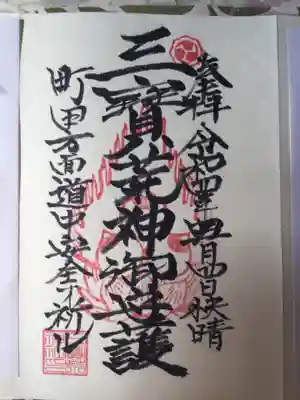 奉拝 令和四年五月四日快晴
三寶荒神御加護
町田方面道中安全ヲ祈ル